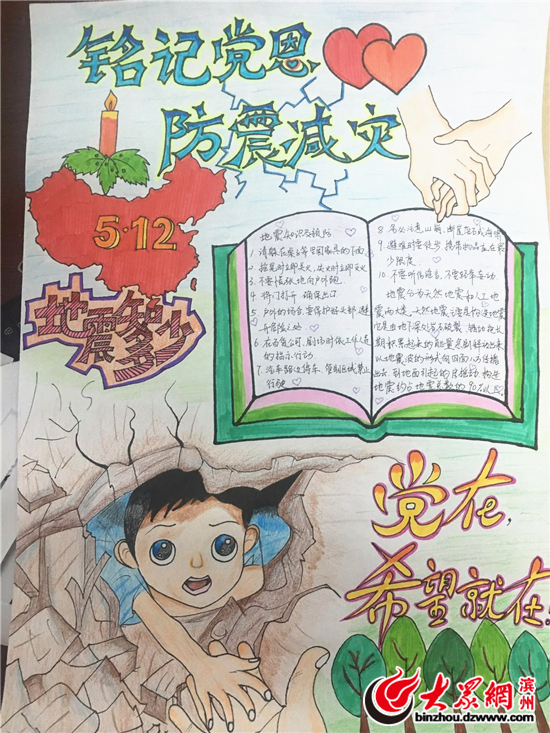 铭记党恩
防震减灾
5·12
地震知多少
地震知识与预防
1. 请躲在桌子等坚固家具的下面
2. 摇晃时立即关火,失火时立即灭火
3. 不要慌张地向户外跑
4. 将门打开 确保出口
5. 户外的场合,要保护好头部,避
开危险之处
6. 在百货公司、剧场时依工作人员
的指示行动
7. 汽车靠路边停车,管制区域禁止
行驶
8. 务必注意山崩、断崖落石或海啸
9. 避难时要徒步,携带物品应在最
少限度
10. 不要听信谣言,不要轻举妄动
地震分为天然地震和人工地
震两大类。天然地震主要是构造地震
它是由于深处岩石破裂、错动把长
期积累起来的能量急剧释放出来
以地震波的形式向四面八方传播
出去,到地面引起的房摇地动 构造
地震约占地震总数的90%以上。
党在,
希望就在。
大众網 滨州
binzhou.dzwww.com